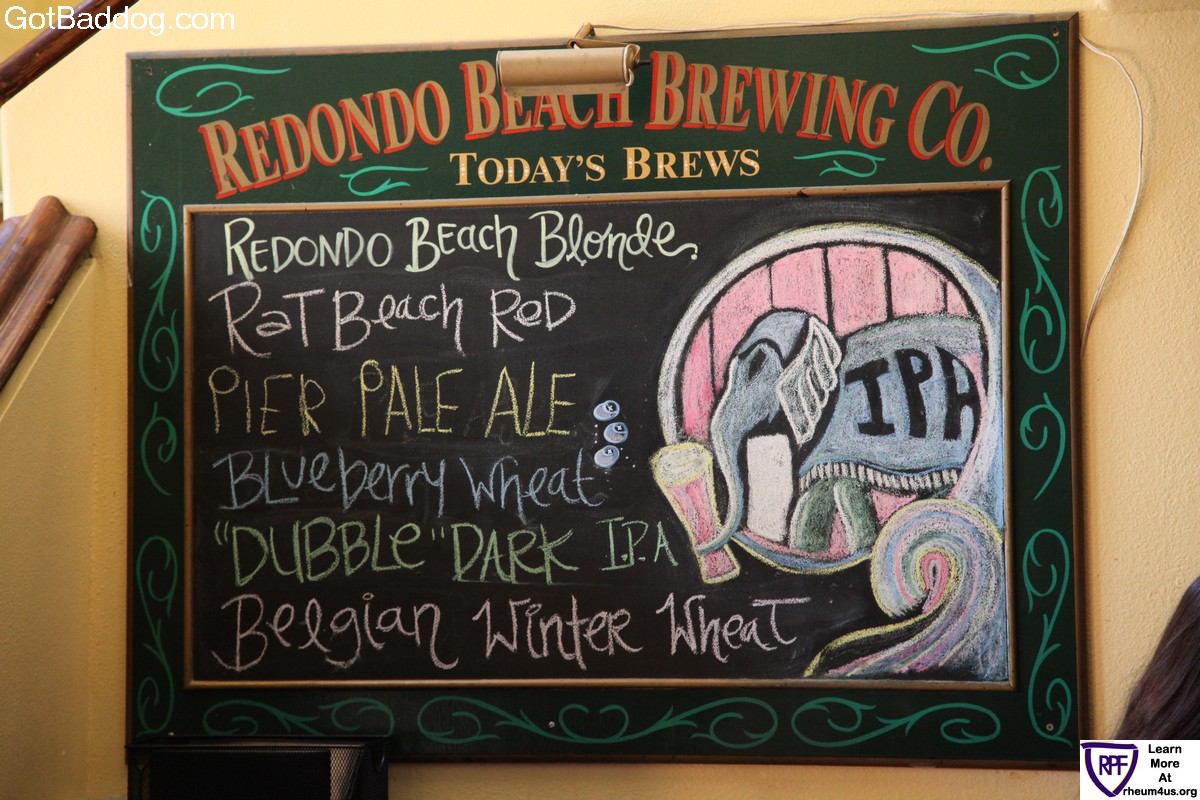 GotBaddog.com
REDONDO BEACH BREWING CO.
TODAY'S BREWS
REDONDO BEACH BLONDE
RAT BEACH RED
PIER PALE ALE
BLUEBERRY WHEAT
"DUBBLE" DARK I.P.A
BELGIAN WINTER WHEAT
IPA
RPF
Learn
More
At
rheum4us.org